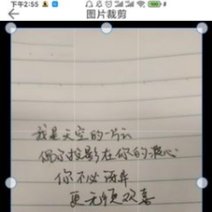 下午2:55
图片裁剪
我是天空的一片云
偶尔投影在你的波心
你不必讶异
更无须欢喜